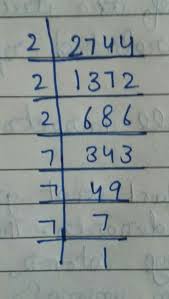 2 2744
2 1372
2 686
7 343
7 49
7 7
1